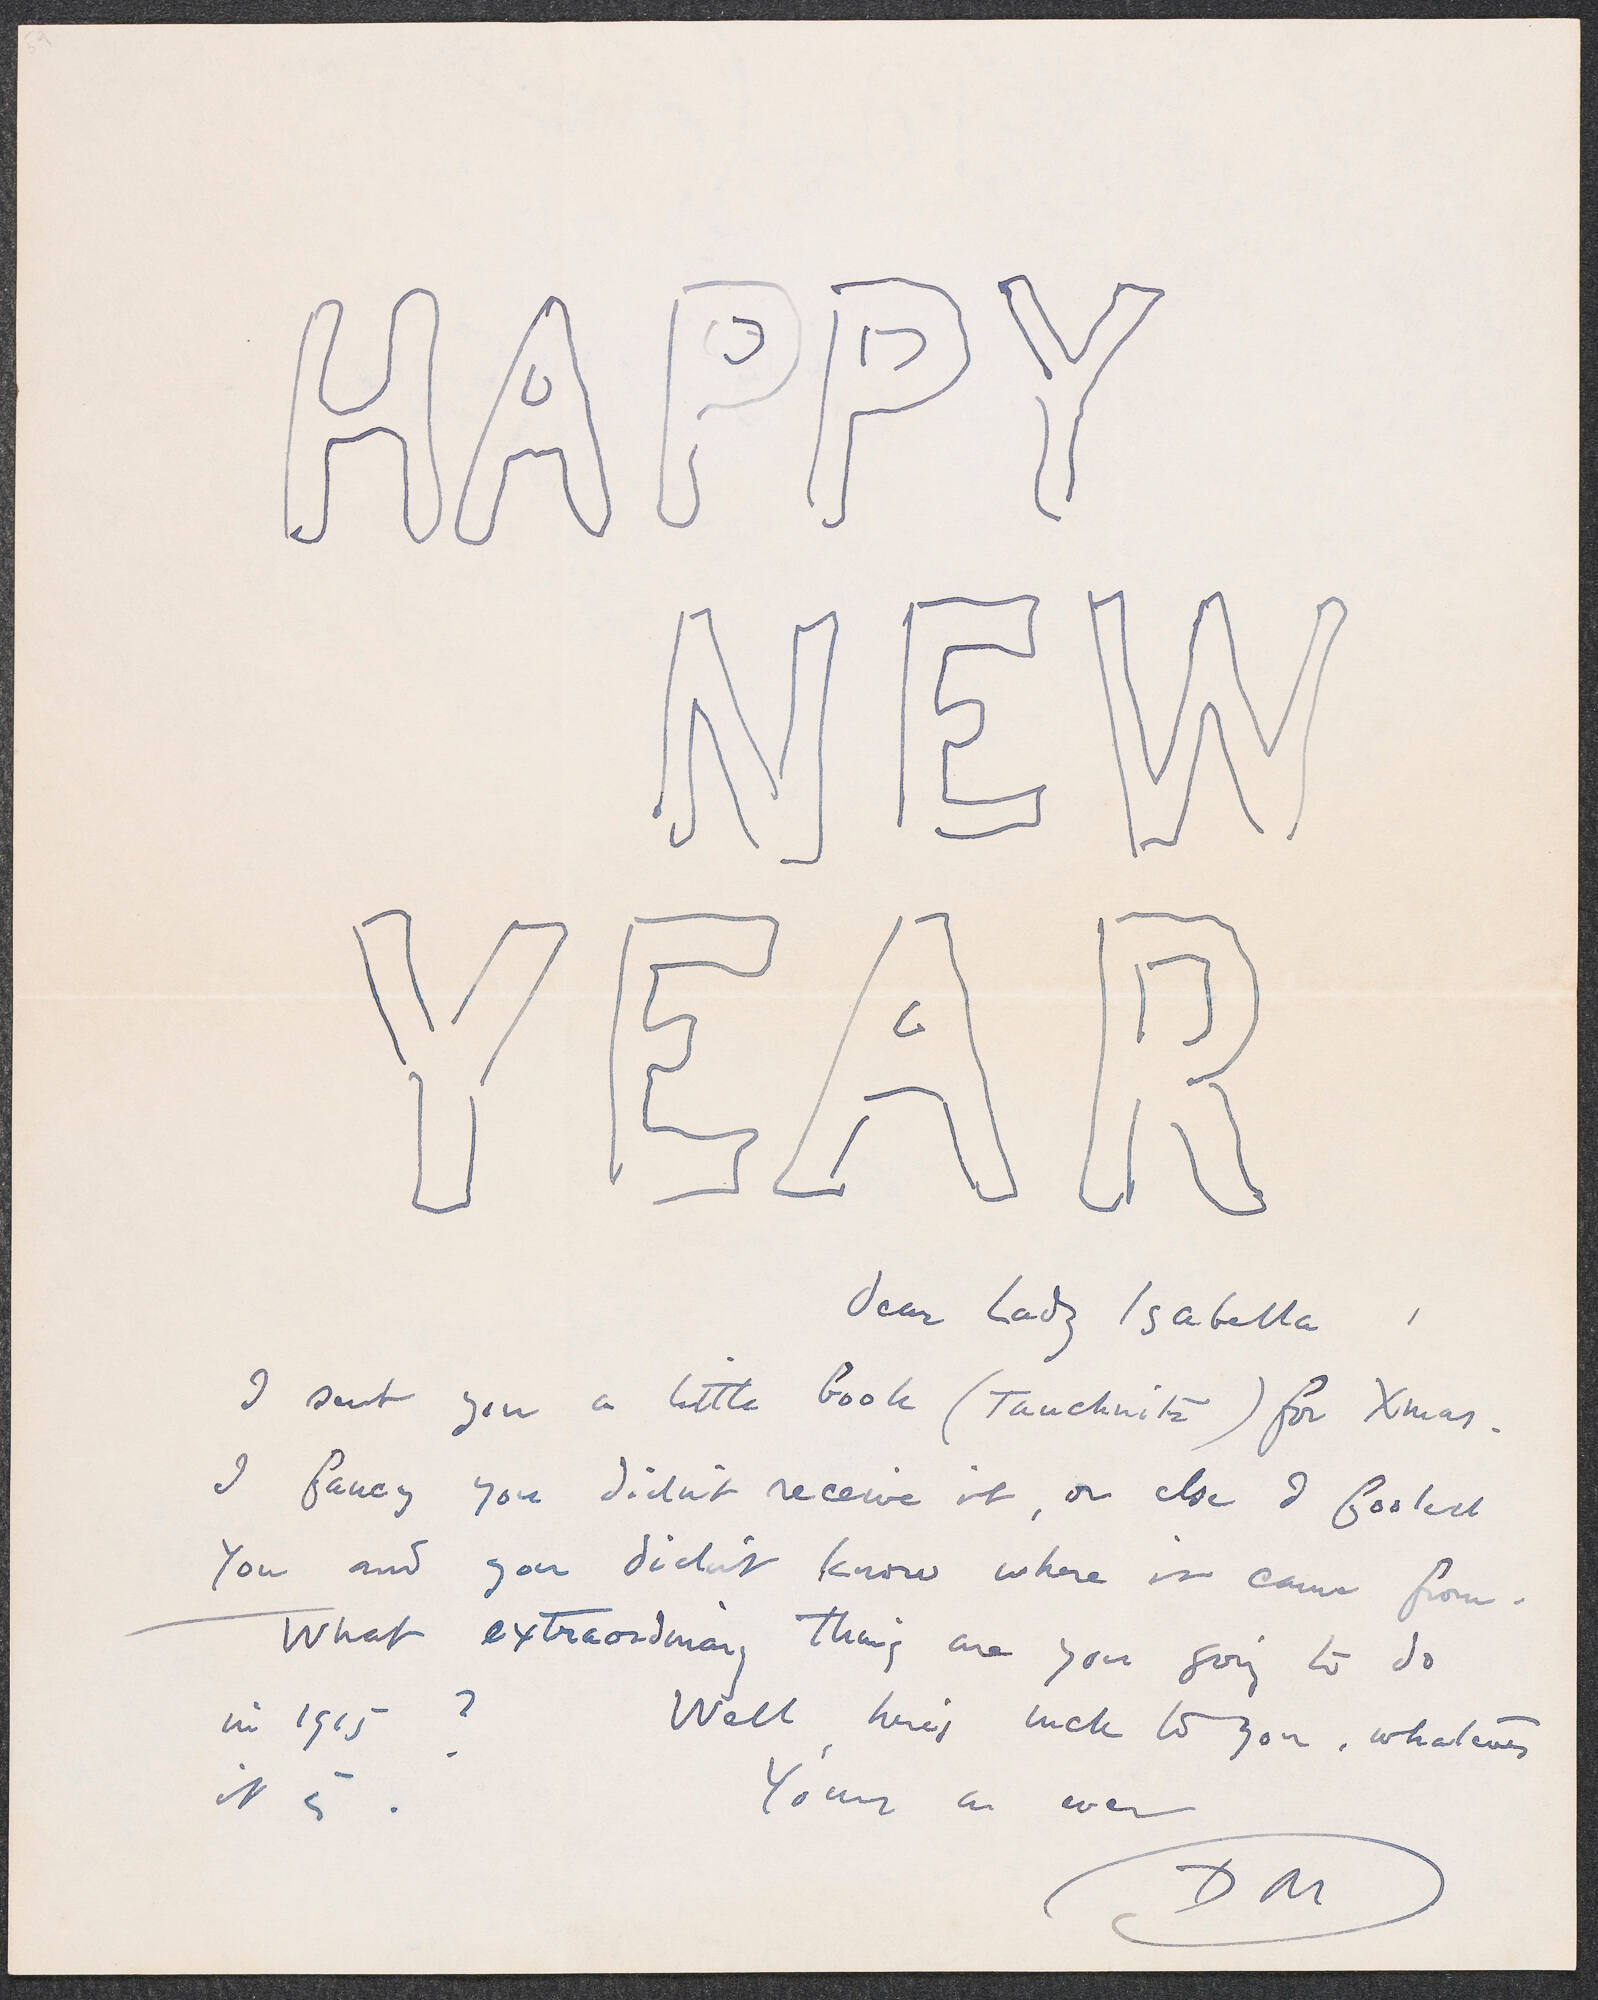 HAPPY
NEW
YEAR
Dear Lady Isabella,
I sent you a little book (Tauchnitz) for Xmas.
I fancy you didn't receive it, or else I fooled
you and you didn't know where it came from.
What extraordinary thing are you going to do
in 1915? Well, here's luck to you, whatever
it is.
Yours as ever
DM